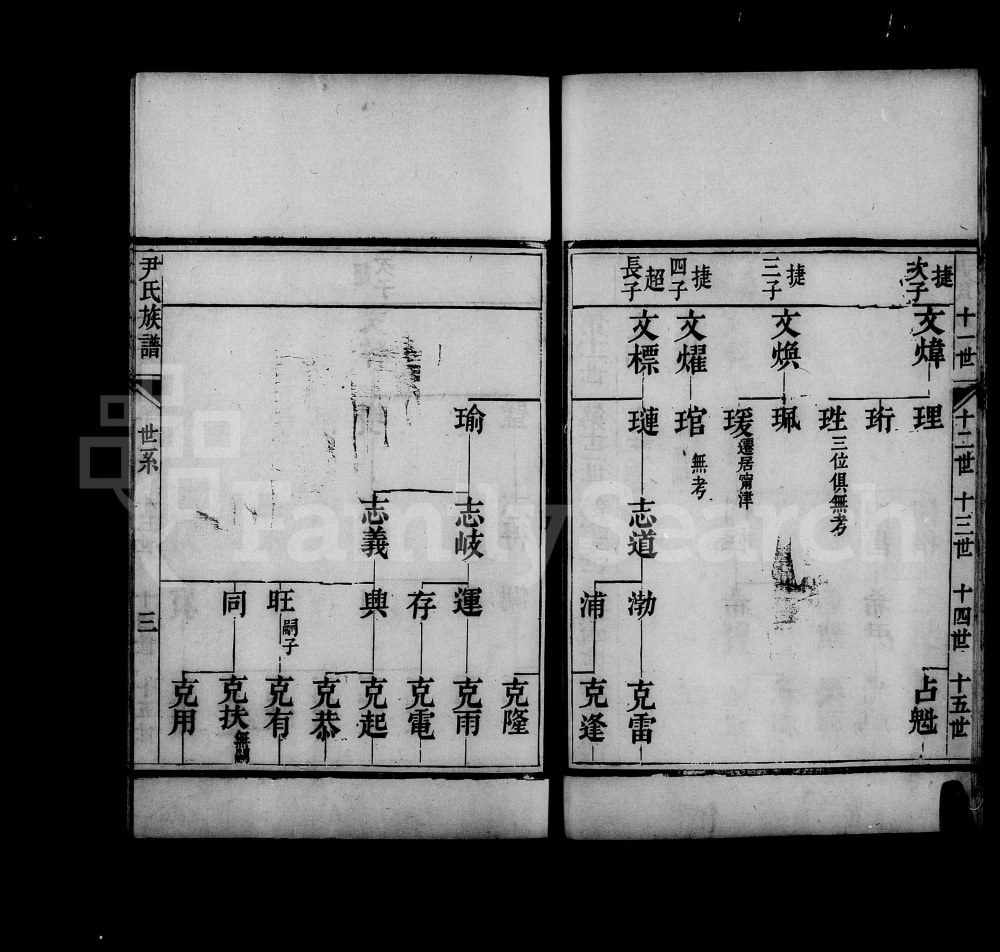 十一世
十二世
十三世
十四世
十五世
捷
次子
文煒
理
占魁
珩
珄
三位俱無考
捷
三子
文煥
珮
瑗
遷居甯津
捷
四子
文燿
琯
無考
超
長子
文標
璉
志道
渤
克雷
浦
克逢
克隆
瑜
志岐
運
克雨
存
克電
志義
興
克起
克恭
旺
嗣子
克有
同
克扶
無嗣
克用
尹氏族譜
世系
十三
FamilySearch